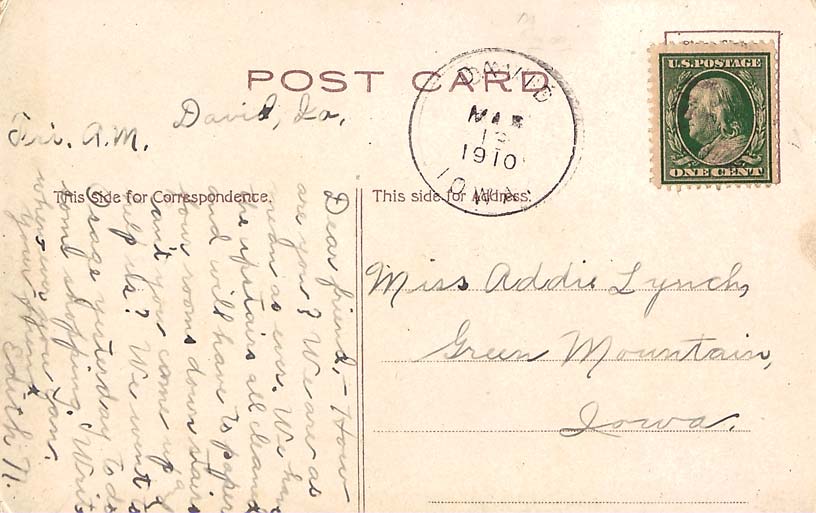 POST CARD
DAVID
MAR
1910
IOWA
U.S.POSTAGE
ONE CENT
David, Ia.
Fri. A.M.
This side for Correspondence.
This side for Address.
Dear friend,- How
are you? We are as
mean as ever. We have
the upstairs all cleaned
and will have to paper
four rooms down stairs
can't you come up &
help us? We went to
Osage yesterday to do
some shopping. Write
when ever you can.
your friend
Edith N.
Miss Addie Lynch,
Green Mountain,
Iowa.